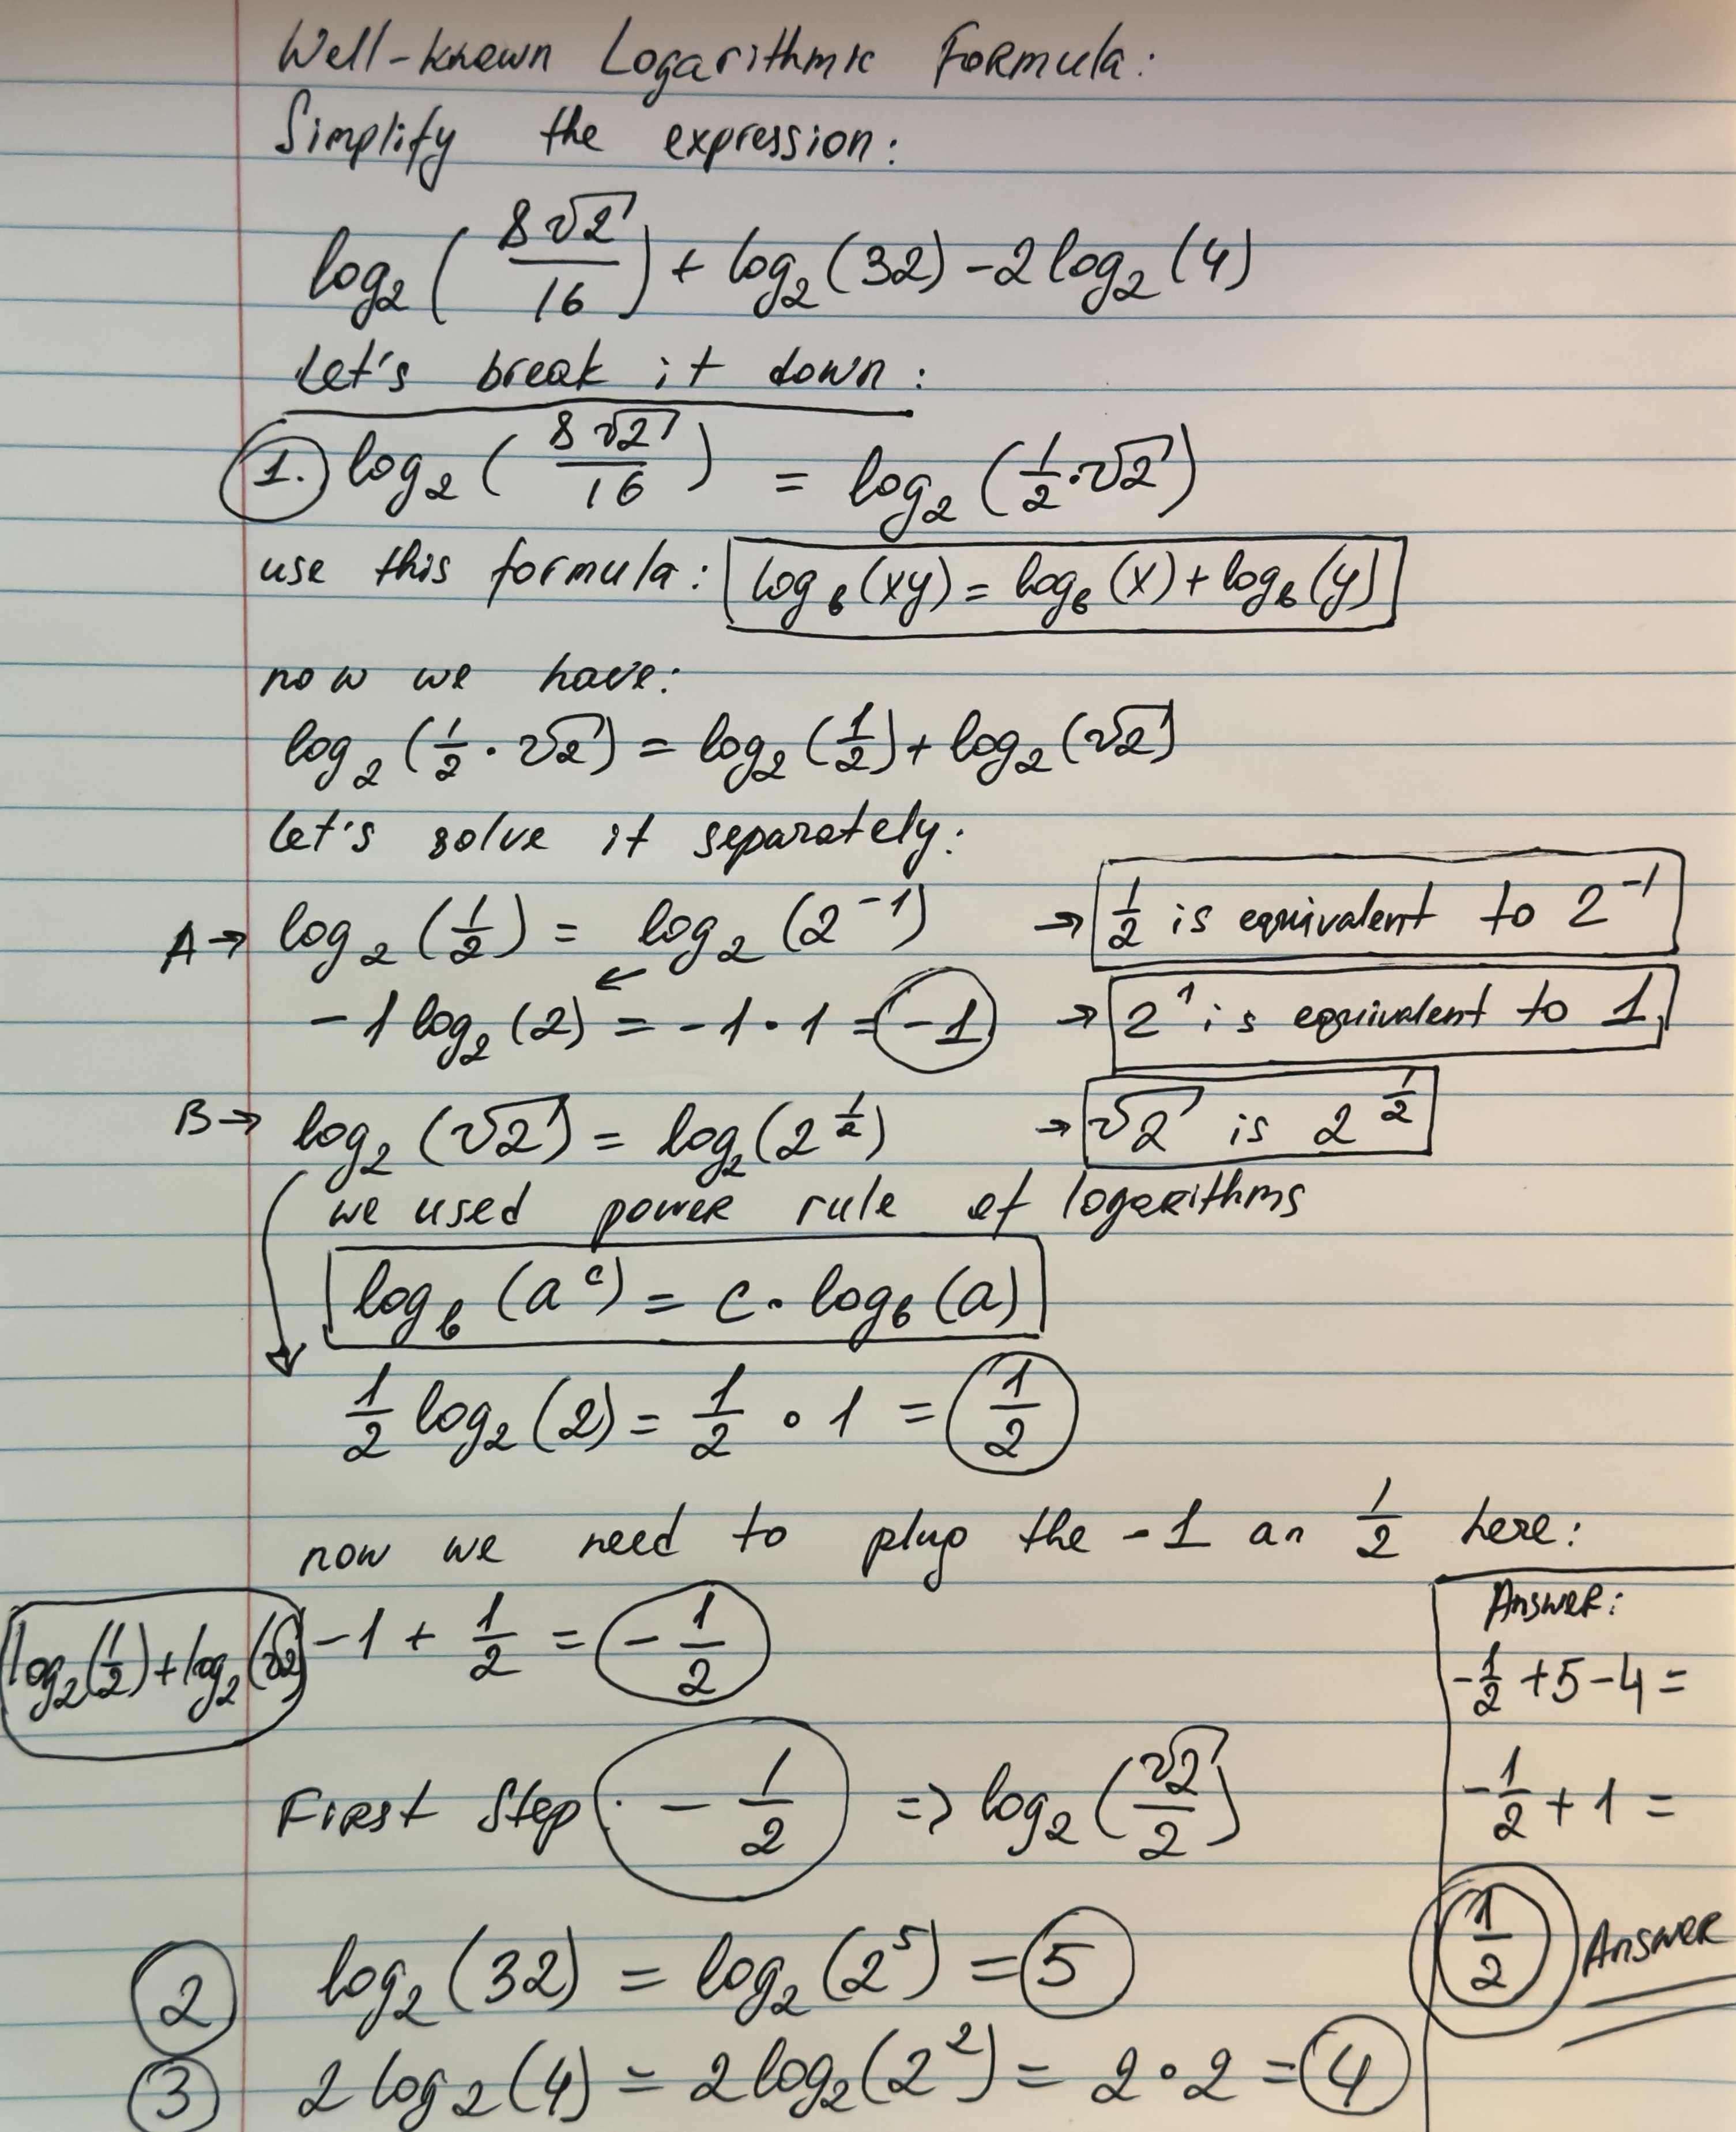 Well-known Logarithmic Formula:
Simplify the expression:
log₂(8√2/16) + log₂(32) - 2log₂(4)
Let's break it down:
1. log₂(8√2/16) = log₂(1/2·√2)
use this formula: log_b(xy) = log_b(x) + log_b(y)
now we have:
log₂(1/2 · √2) = log₂(1/2) + log₂(√2)
Let's solve it separately:
A → log₂(1/2) = log₂(2⁻¹) → 1/2 is equivalent to 2⁻¹
←
-1 log₂(2) = -1 · 1 = -1 → 2¹ is equivalent to 1
B → log₂(√2) = log₂(2^(1/2)) → √2 is 2^(1/2)
we used power rule of logarithms
log_b(a^c) = c · log_b(a)
1/2 log₂(2) = 1/2 · 1 = 1/2
now we need to plug the -1 an 1/2 here:
log₂(1/2) + log₂(√2) -1 + 1/2 = -1/2
First Step: -1/2 => log₂(√2/2)
2 log₂(32) = log₂(2⁵) = 5
3 2log₂(4) = 2log₂(2²) = 2 · 2 = 4
Answer:
-1/2 + 5 - 4 =
-1/2 + 1 =
1/2 Answer